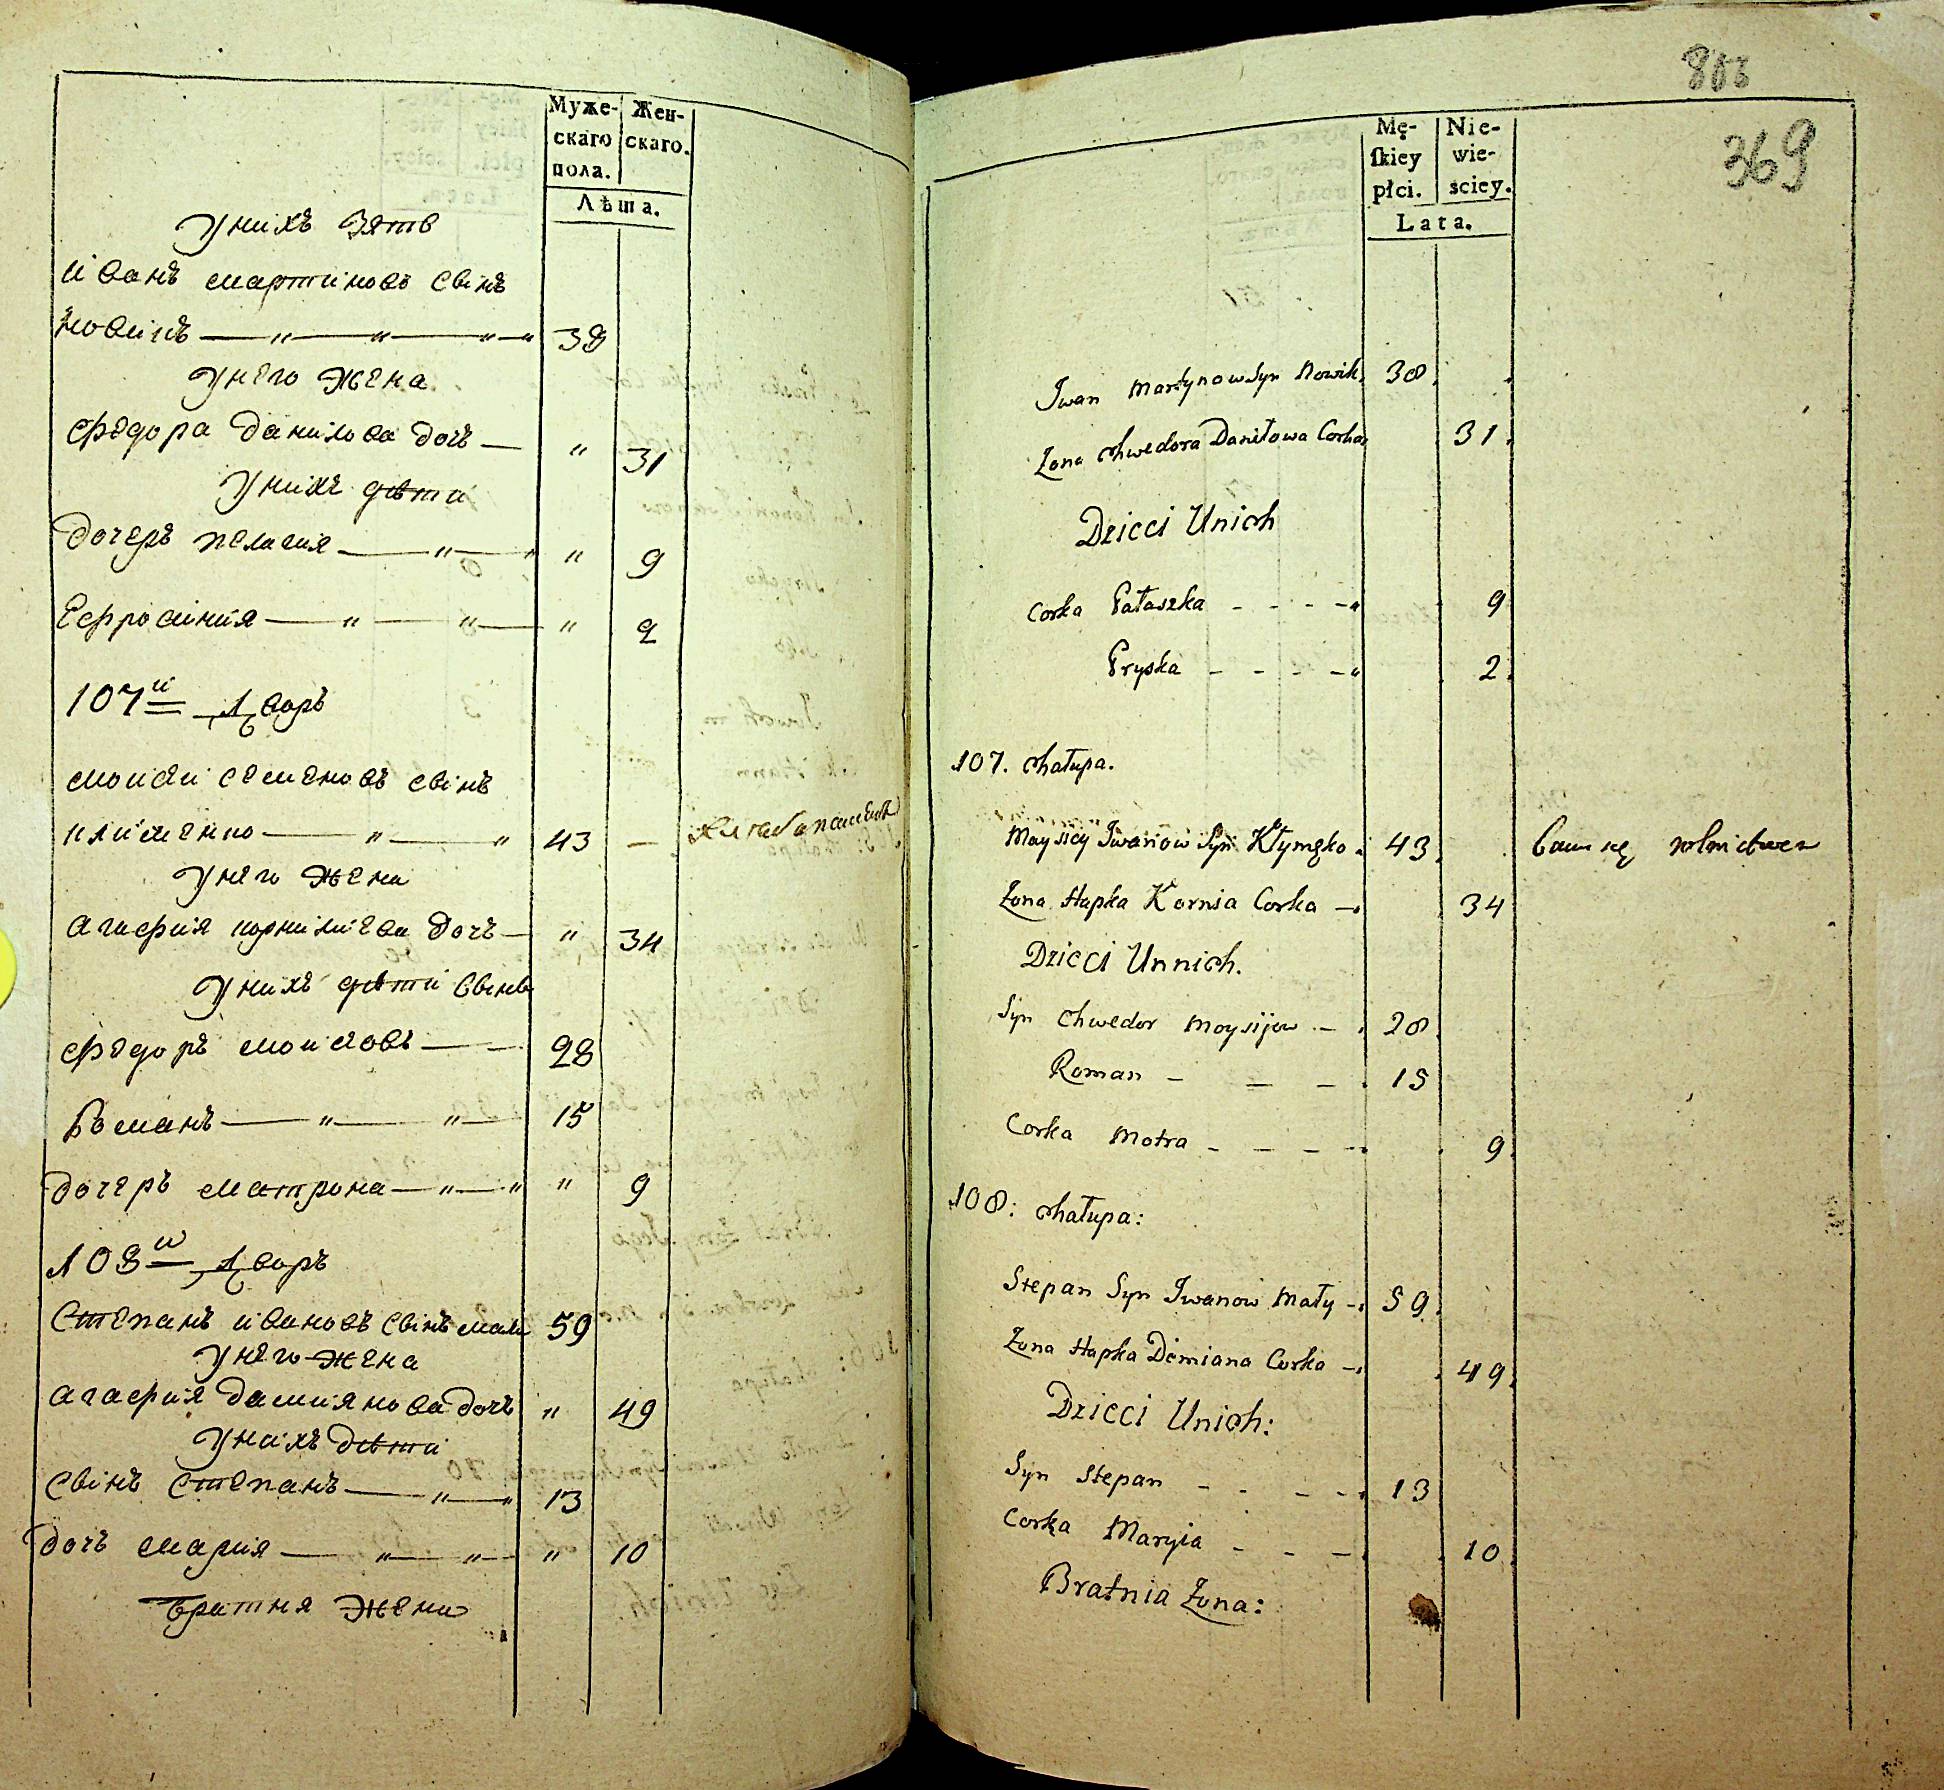 Муже-
скаго
пола.
Жен-
скаго.
Лѣта.
У нихъ зять
Иванъ Мартиновъ свінъ
Новикъ — „ — „ — „ — „ 38
У него жена
Федора Данилова дочь — „ 31
У нихъ дѣти
Дочерь Пелагия — „ — „ „ 9
Ефросиния — „ — „ — „ 2
107й Дворъ
Моисей Семеновъ свінъ
Клименко — „ — „ 43 —
У него жена
Агафия Корнилиева дочь — „ 34
У нихъ дѣти свінъ
Федоръ Моисеовъ — — 28
Романъ — „ — „ — 15
Дочерь Матрона — „ — „ „ 9
108й Дворъ
Степанъ Ивановъ свінъ Мали 59
У него жена
Агафия Дамиянова дочь „ 49
У нихъ дѣти
Свінъ Степанъ — „ — „ 13
Дочь Мария — „ — „ — „ 10
Братня жена
369
Mę-
ſkiey
płci.
Nie-
wie-
ściey.
Lata.
Iwan Martynow Syn Nowik. 38.
Żona Chwedora Daniłowa Corka 31.
Dzieci Unich
Corka Pałaszka - - - - „ 9
Pryska - - - - „ 2.
107. Chałupa.
Maysiey Iwanow Syn Kłymęko . 43.
Żona Hapka Kornia Corka — 34
Dzieci Unnich.
Syn Chwedor Moysijow - . 28.
Roman - - - . 15
Corka Motra - - - - 9.
108: Chałupa:
Stepan Syn Iwanow Mały -. 59.
Żona Hapka Demiana Corka -. 49.
Dzieci Unich:
Syn Stepan - - - - . 13
Corka Maryia - - - . 10.
Bratnia Żona: